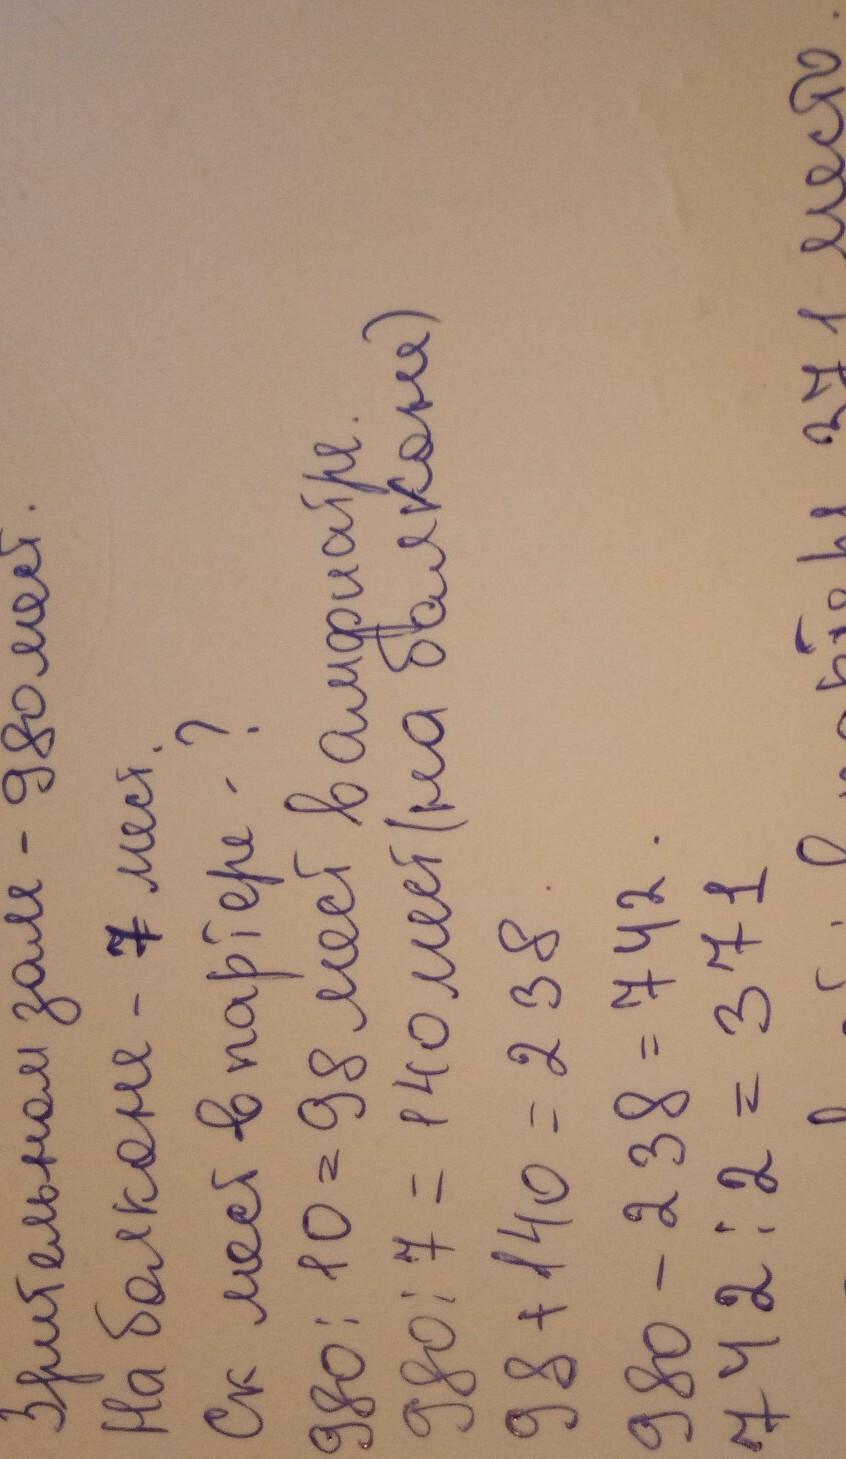 Зрительном зале - 980 мест.
На болконе - 7 мест.
Ск мест в партере - ?
980 : 10 = 98 мест в амфиатре.
980 : 7 = 140 мест (на балконе)
98 + 140 = 238.
980 - 238 = 742.
742 : 2 = 371
в партере 371 место.